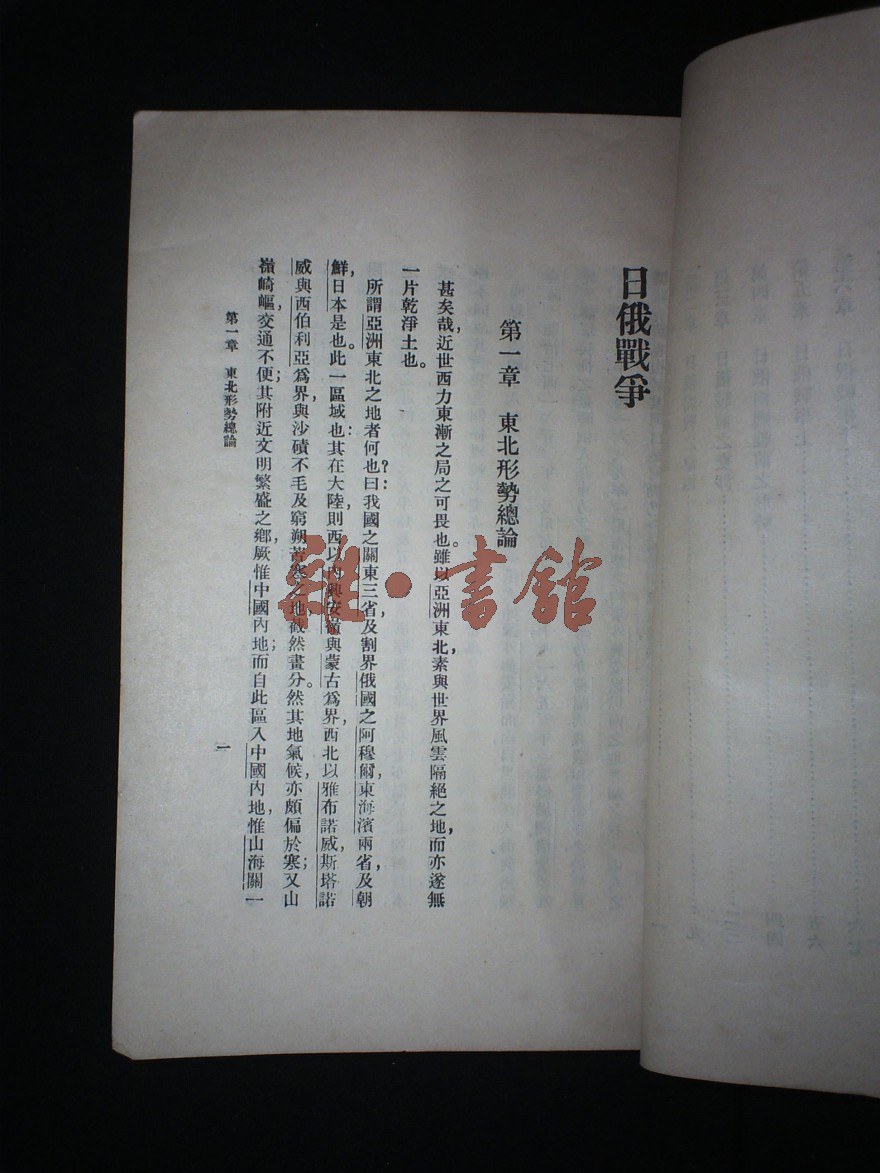 日俄戰爭
第一章　東北形勢總論
甚矣哉，近世西力東漸之局之可畏也。雖以亞洲東北素與世界風雲隔絕之地，而亦遂無
一片乾淨土也。
所謂亞洲東北之地者何也？曰：我國之關東三省，及割界俄國之阿穆爾，東海濱兩省，及朝
鮮，日本是也。此一區域也：其在大陸，則西以內興安嶺與蒙古爲界，西北以雅布諾威，斯塔諾
威與西伯利亞爲界，與沙磧不毛及窮朔苦寒之地，截然畫分。然其地氣候，亦頗偏於寒；又山
嶺崎嶇，交通不便；其附近文明繁盛之鄉，厥惟中國內地；而自此區入中國內地，惟山海關一
第一章　東北形勢總論
一
雜·書舘